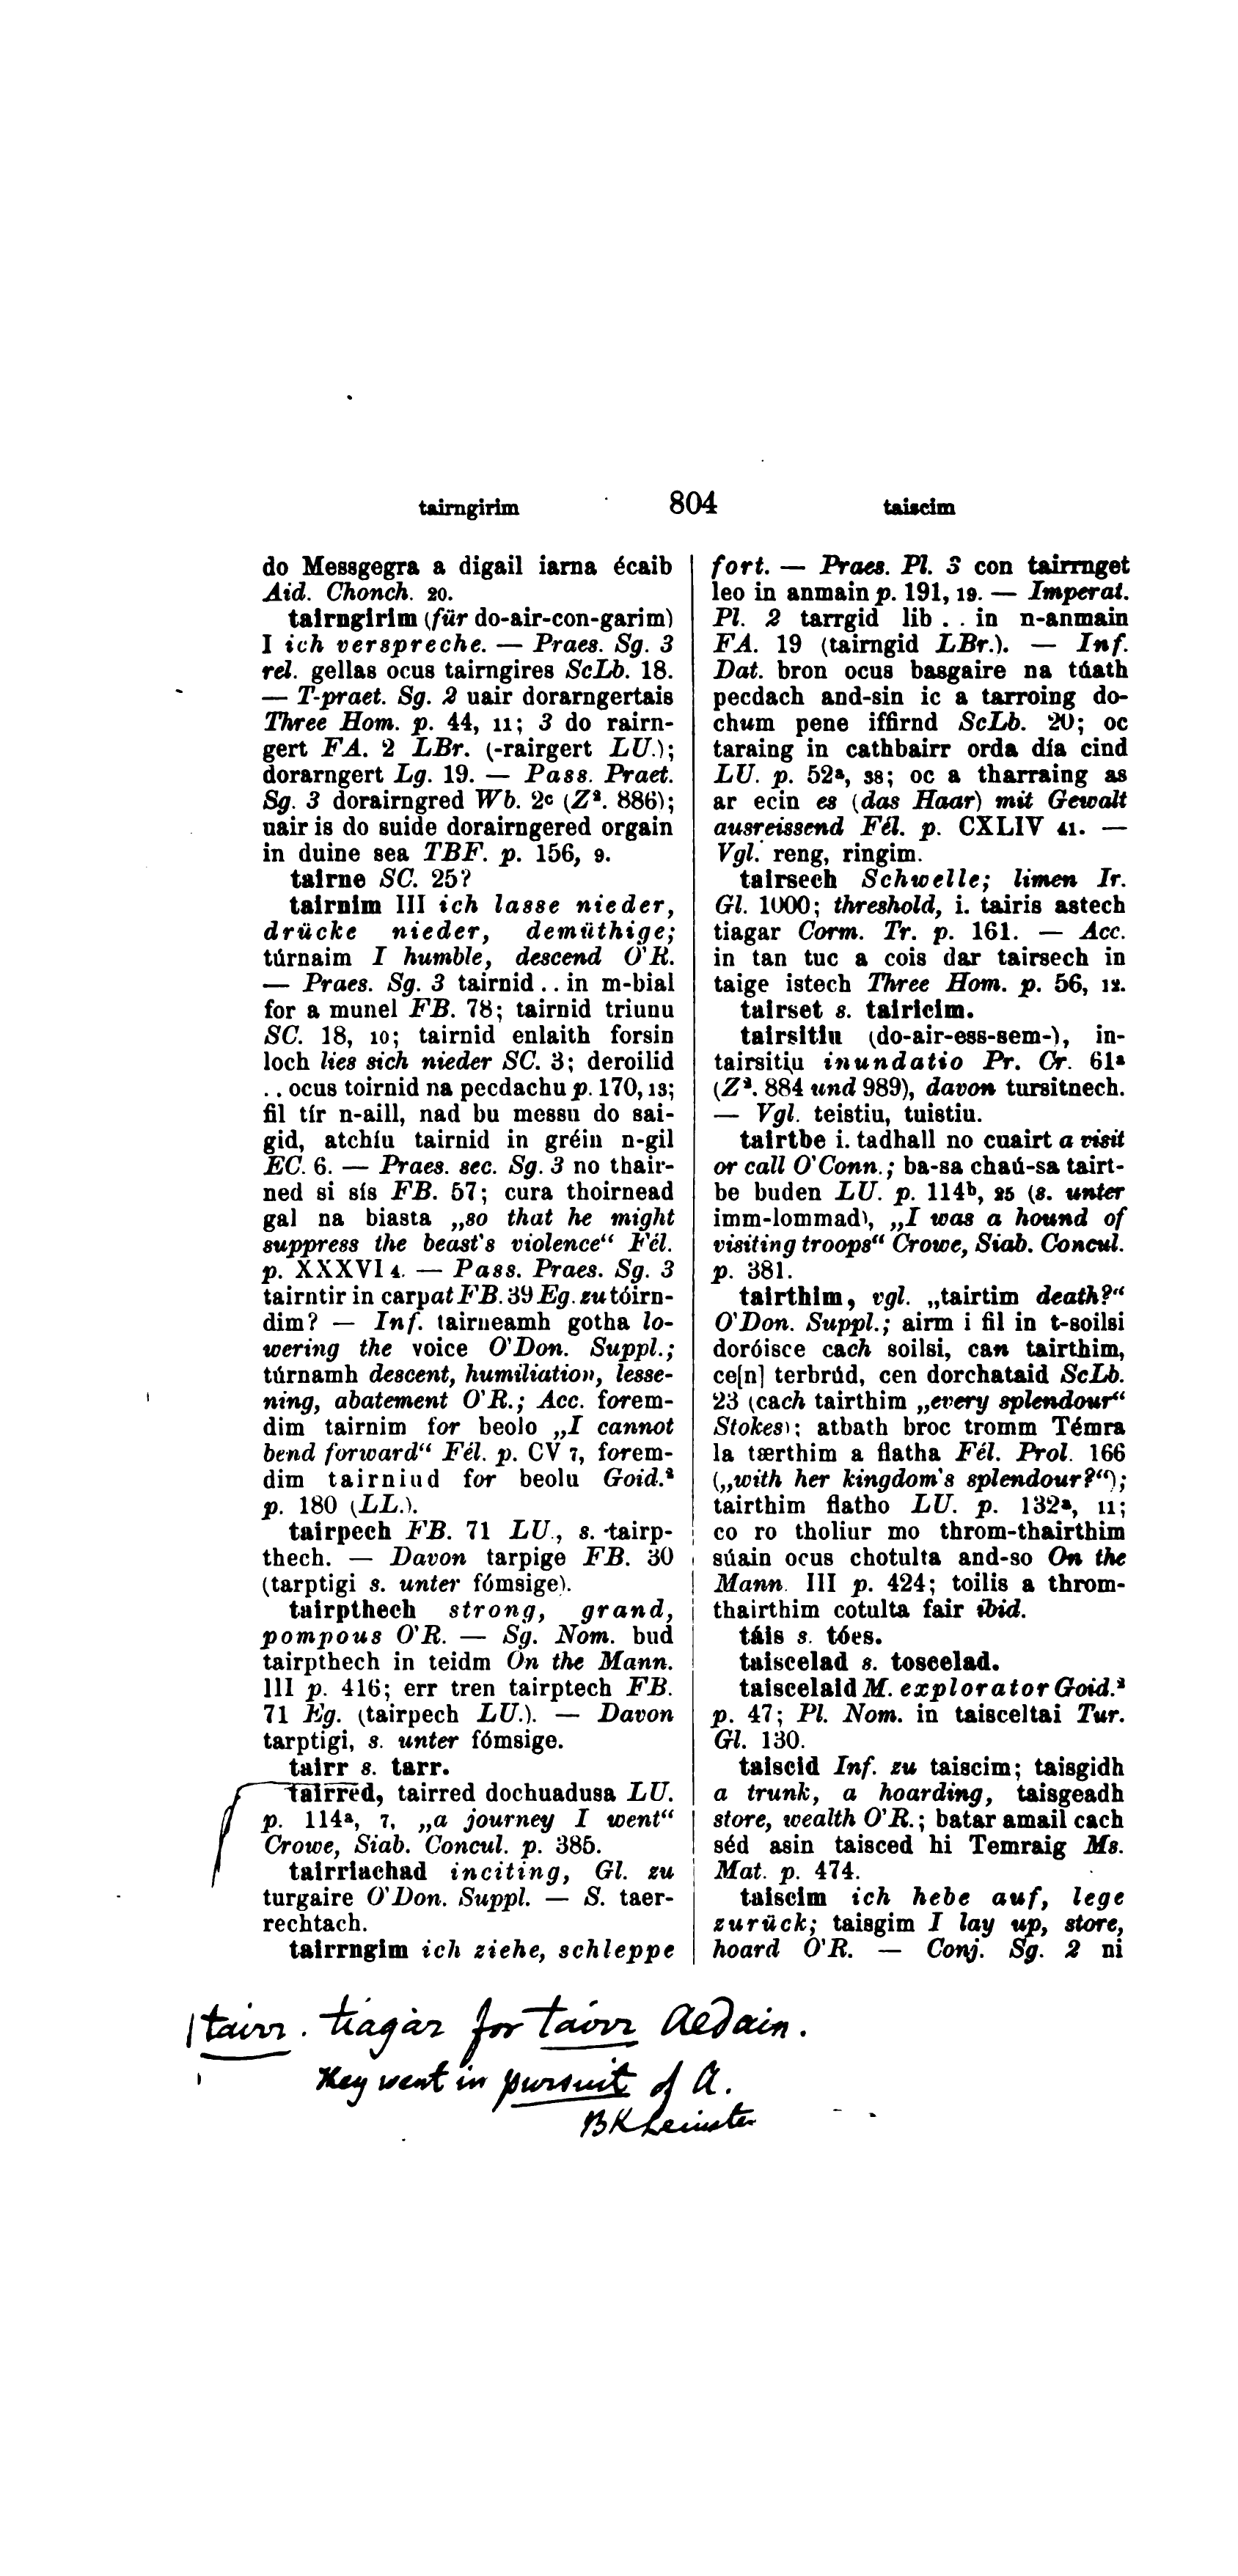 tairngirim 804 taiscim
do Messgegra a digail iarna écaib
Aid. Chonch. 20.
tairngirim (für do-air-con-garim)
I ich verspreche. — Praes. Sg. 3
rel. gellas ocus tairngires ScLb. 18.
— T-praet. Sg. 2 uair dorarngertais
Three Hom. p. 44, 11; 3 do rairn-
gert FA. 2 LBr. (-rairgert LU.);
dorarngert Lg. 19. — Pass. Praet.
Sg. 3 dorairngred Wb. 2c (Z². 886);
uair is do suide dorairngered orgain
in duine sea TBF. p. 156, 9.
tairne SC. 25?
tairnim III ich lasse nieder,
drücke nieder, demüthige;
túrnaim I humble, descend O'R.
— Praes. Sg. 3 tairnid .. in m-bial
for a munel FB. 78; tairnid triunu
SC. 18, 10; tairnid enlaith forsin
loch lies sich nieder SC. 3; deroilid
.. ocus toirnid na pecdachu p. 170, 13;
fil tír n-aill, nad bu messu do sai-
gid, atchíu tairnid in gréin n-gil
EC. 6. — Praes. sec. Sg. 3 no thair-
ned si sís FB. 57; cura thoirnead
gal na biasta „so that he might
suppress the beast's violence“ Fél.
p. XXXVI 4. — Pass. Praes. Sg. 3
tairntir in carpat FB. 39 Eg. zu tóirn-
dim? — Inf. tairneamh gotha lo-
wering the voice O'Don. Suppl.;
túrnamh descent, humiliation, lesse-
ning, abatement O'R.; Acc. forem-
dim tairnim for beolo „I cannot
bend forward“ Fél. p. CV 7, forem-
dim tairniud for beolu Goid.²
p. 180 (LL.).
tairpech FB. 71 LU., s. tairp-
thech. — Davon tarpige FB. 30
(tarptigi s. unter fómsige).
tairpthech strong, grand,
pompous O'R. — Sg. Nom. bud
tairpthech in teidm On the Mann.
III p. 416; err tren tairptech FB.
71 Eg. (tairpech LU.). — Davon
tarptigi, s. unter fómsige.
tairr s. tarr.
tairred, tairred dochuadusa LU.
p. 114ª, 7, „a journey I went“
Crowe, Siab. Concul. p. 385.
tairriachad inciting, Gl. zu
turgaire O'Don. Suppl. — S. taer-
rechtach.
tairrngim ich ziehe, schleppe
fort. — Praes. Pl. 3 con tairrnget
leo in anmain p. 191, 19. — Imperat.
Pl. 2 tarrgid lib .. in n-anmain
FA. 19 (tairngid LBr.). — Inf.
Dat. bron ocus basgaire na túath
pecdach and-sin ic a tarroing do-
chum pene iffirnd ScLb. 20; oc
taraing in cathbairr orda día cind
LU. p. 52ª, 38; oc a tharraing as
ar ecin es (das Haar) mit Gewalt
ausreissend Fél. p. CXLIV 41. —
Vgl. reng, ringim.
tairsech Schwelle; limen Ir.
Gl. 1000; threshold, i. tairis astech
tiagar Corm. Tr. p. 161. — Acc.
in tan tuc a cois dar tairsech in
taige istech Three Hom. p. 56, 12.
tairset s. tairicim.
tairsitiu (do-air-ess-sem-), in-
tairsitiu inundatio Pr. Cr. 61ª
(Z². 884 und 989), davon tursitnech.
— Vgl. teistiu, tuistiu.
tairtbe i. tadhall no cuairt a visit
or call O'Conn.; ba-sa chaú-sa tairt-
be buden LU. p. 114ᵇ, 25 (s. unter
imm-lommad), „I was a hound of
visiting troops“ Crowe, Siab. Concul.
p. 381.
tairthim, vgl. „tairtim death?“
O'Don. Suppl.; airm i fil in t-soilsi
doróisce cach soilsi, can tairthim,
ce[n] terbrúd, cen dorchataid ScLb.
23 (cach tairthim „every splendour“
Stokes); atbath broc tromm Témra
la tærthim a flatha Fél. Prol. 166
(„with her kingdom's splendour?“);
tairthim flatho LU. p. 132ª, 11;
co ro tholiur mo throm-thairthim
súain ocus chotulta and-so On the
Mann. III p. 424; toilis a throm-
thairthim cotulta fair ibid.
táis s. tóes.
taiscelad s. toscelad.
taiscelaid M. explorator Goid.²
p. 47; Pl. Nom. in taisceltai Tur.
Gl. 130.
taiscid Inf. zu taiscim; taisgidh
a trunk, a hoarding, taisgeadh
store, wealth O'R.; batar amail cach
séd asin taisced hi Temraig Ms.
Mat. p. 474.
taiscim ich hebe auf, lege
zurück; taisgim I lay up, store,
hoard O'R. — Conj. Sg. 2 ni
tairr. tiagar for tairr Aedain.
they went in pursuit of A.
BK Leinster